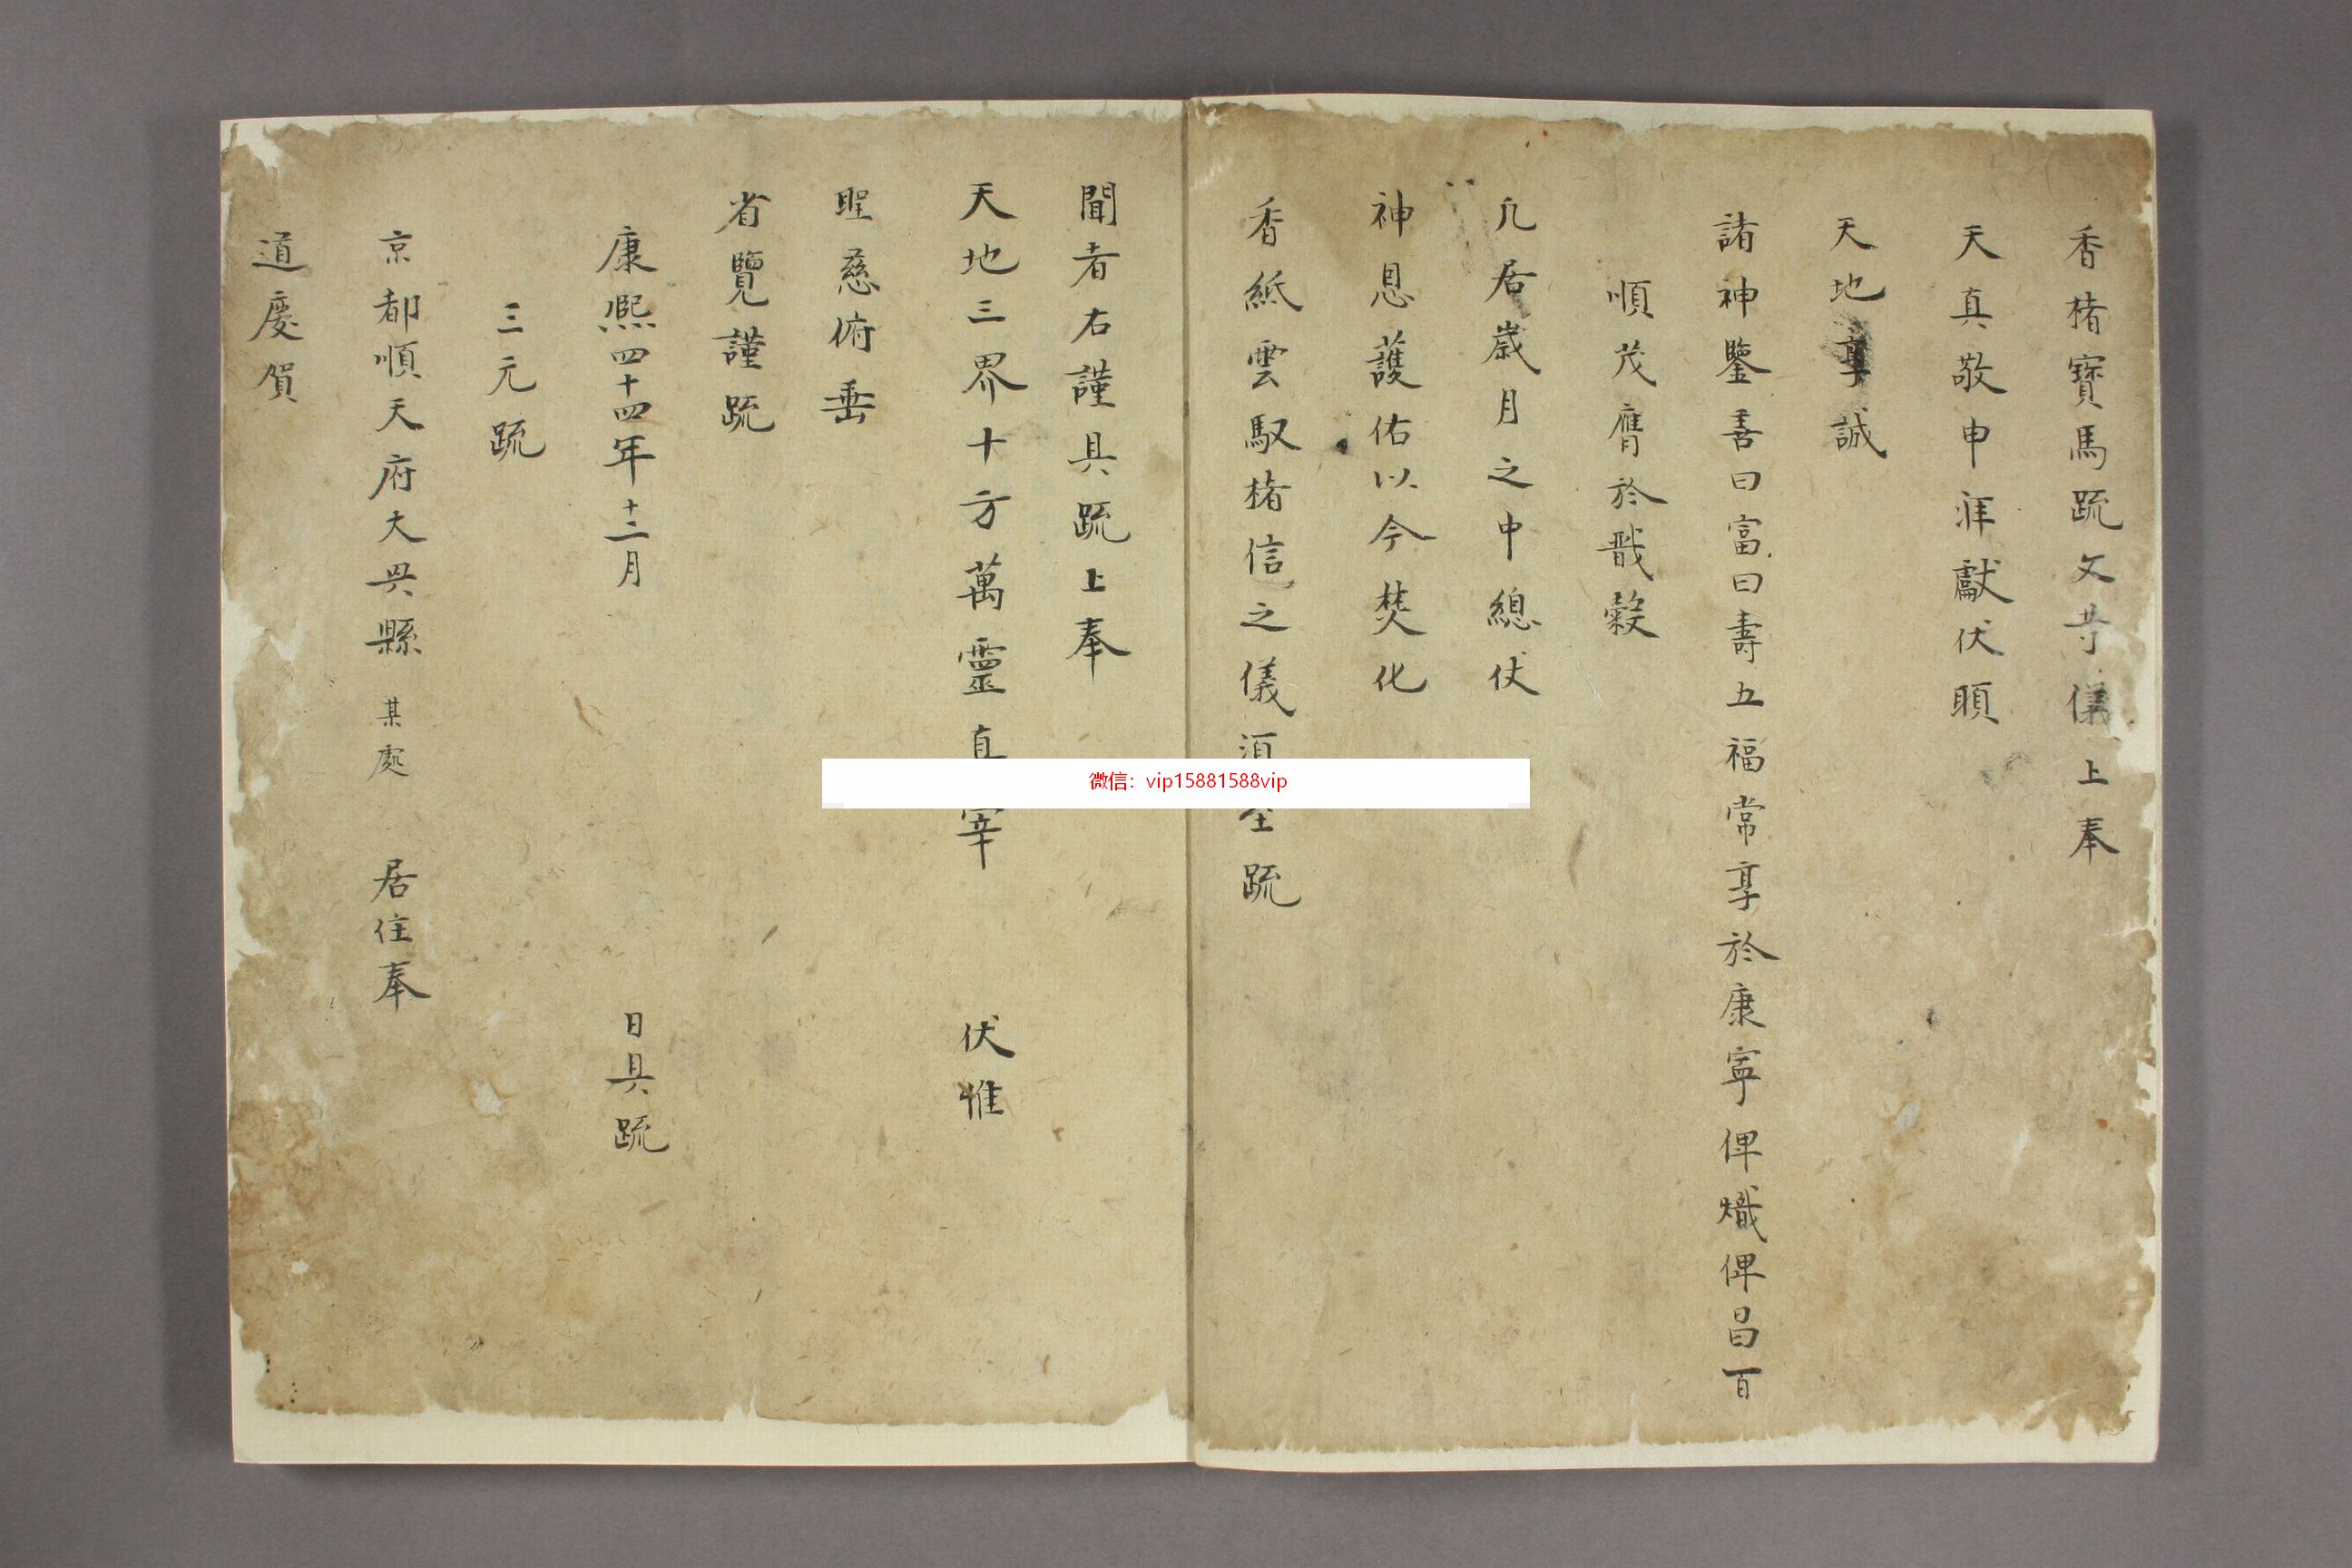 香楮寶馬疏文等儀上奉
天真敬申泮獻伏願
天地享誠
諸神鑒善曰富曰壽五福常享於康寧俾熾俾昌百
順茂膺於戩穀
凡居歲月之中總伏
神恩護佑以今焚化
香紙雲馭楮信之儀須至疏
聞者右謹具疏上奉
天地三界十方萬靈真宰 伏惟
聖慈俯垂
省覽謹疏
康熙四十四年十二月 日具疏
三元疏
京都順天府大興縣 某處 居住奉
道慶賀
微信：vip15881588vip